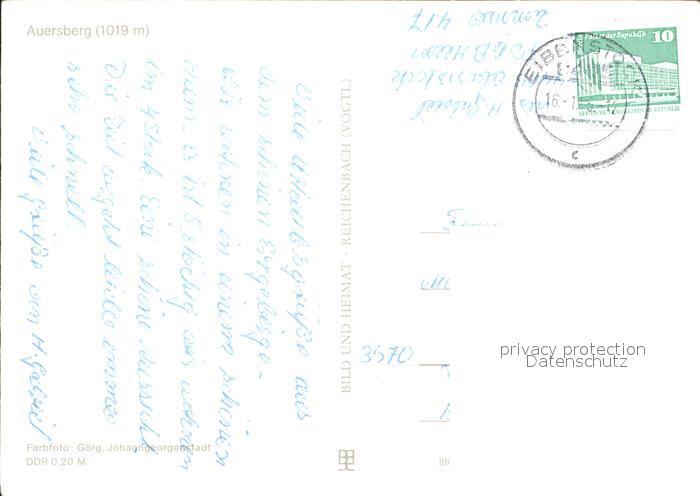 Auersberg (1019 m)
Viele Urlaubsgrüße aus
dem schönen Erzgebirge.
Wir wohnen in einem schönen
Heim. Es ist 8 stöckig wir wohnen
im 4 Stock. Eine schöne Aussicht.
Die Zeit vergeht leider immer
sehr schnell.
Viele Grüße von H. Gabriel
Farbfoto: Görg, Johanngeorgenstadt
DDR 0,20 M
BILD UND HEIMAT · REICHENBACH (VOGTL)
III/
H. Gabriel
Eibenstock
FDGB Heim
Zimmer 417
Berlin Palast der Republik
10
DEUTSCHE DEMOKRATISCHE REPUBLIK
EIBENSTOCK
16.-1
c
3570
privacy protection
Datenschutz